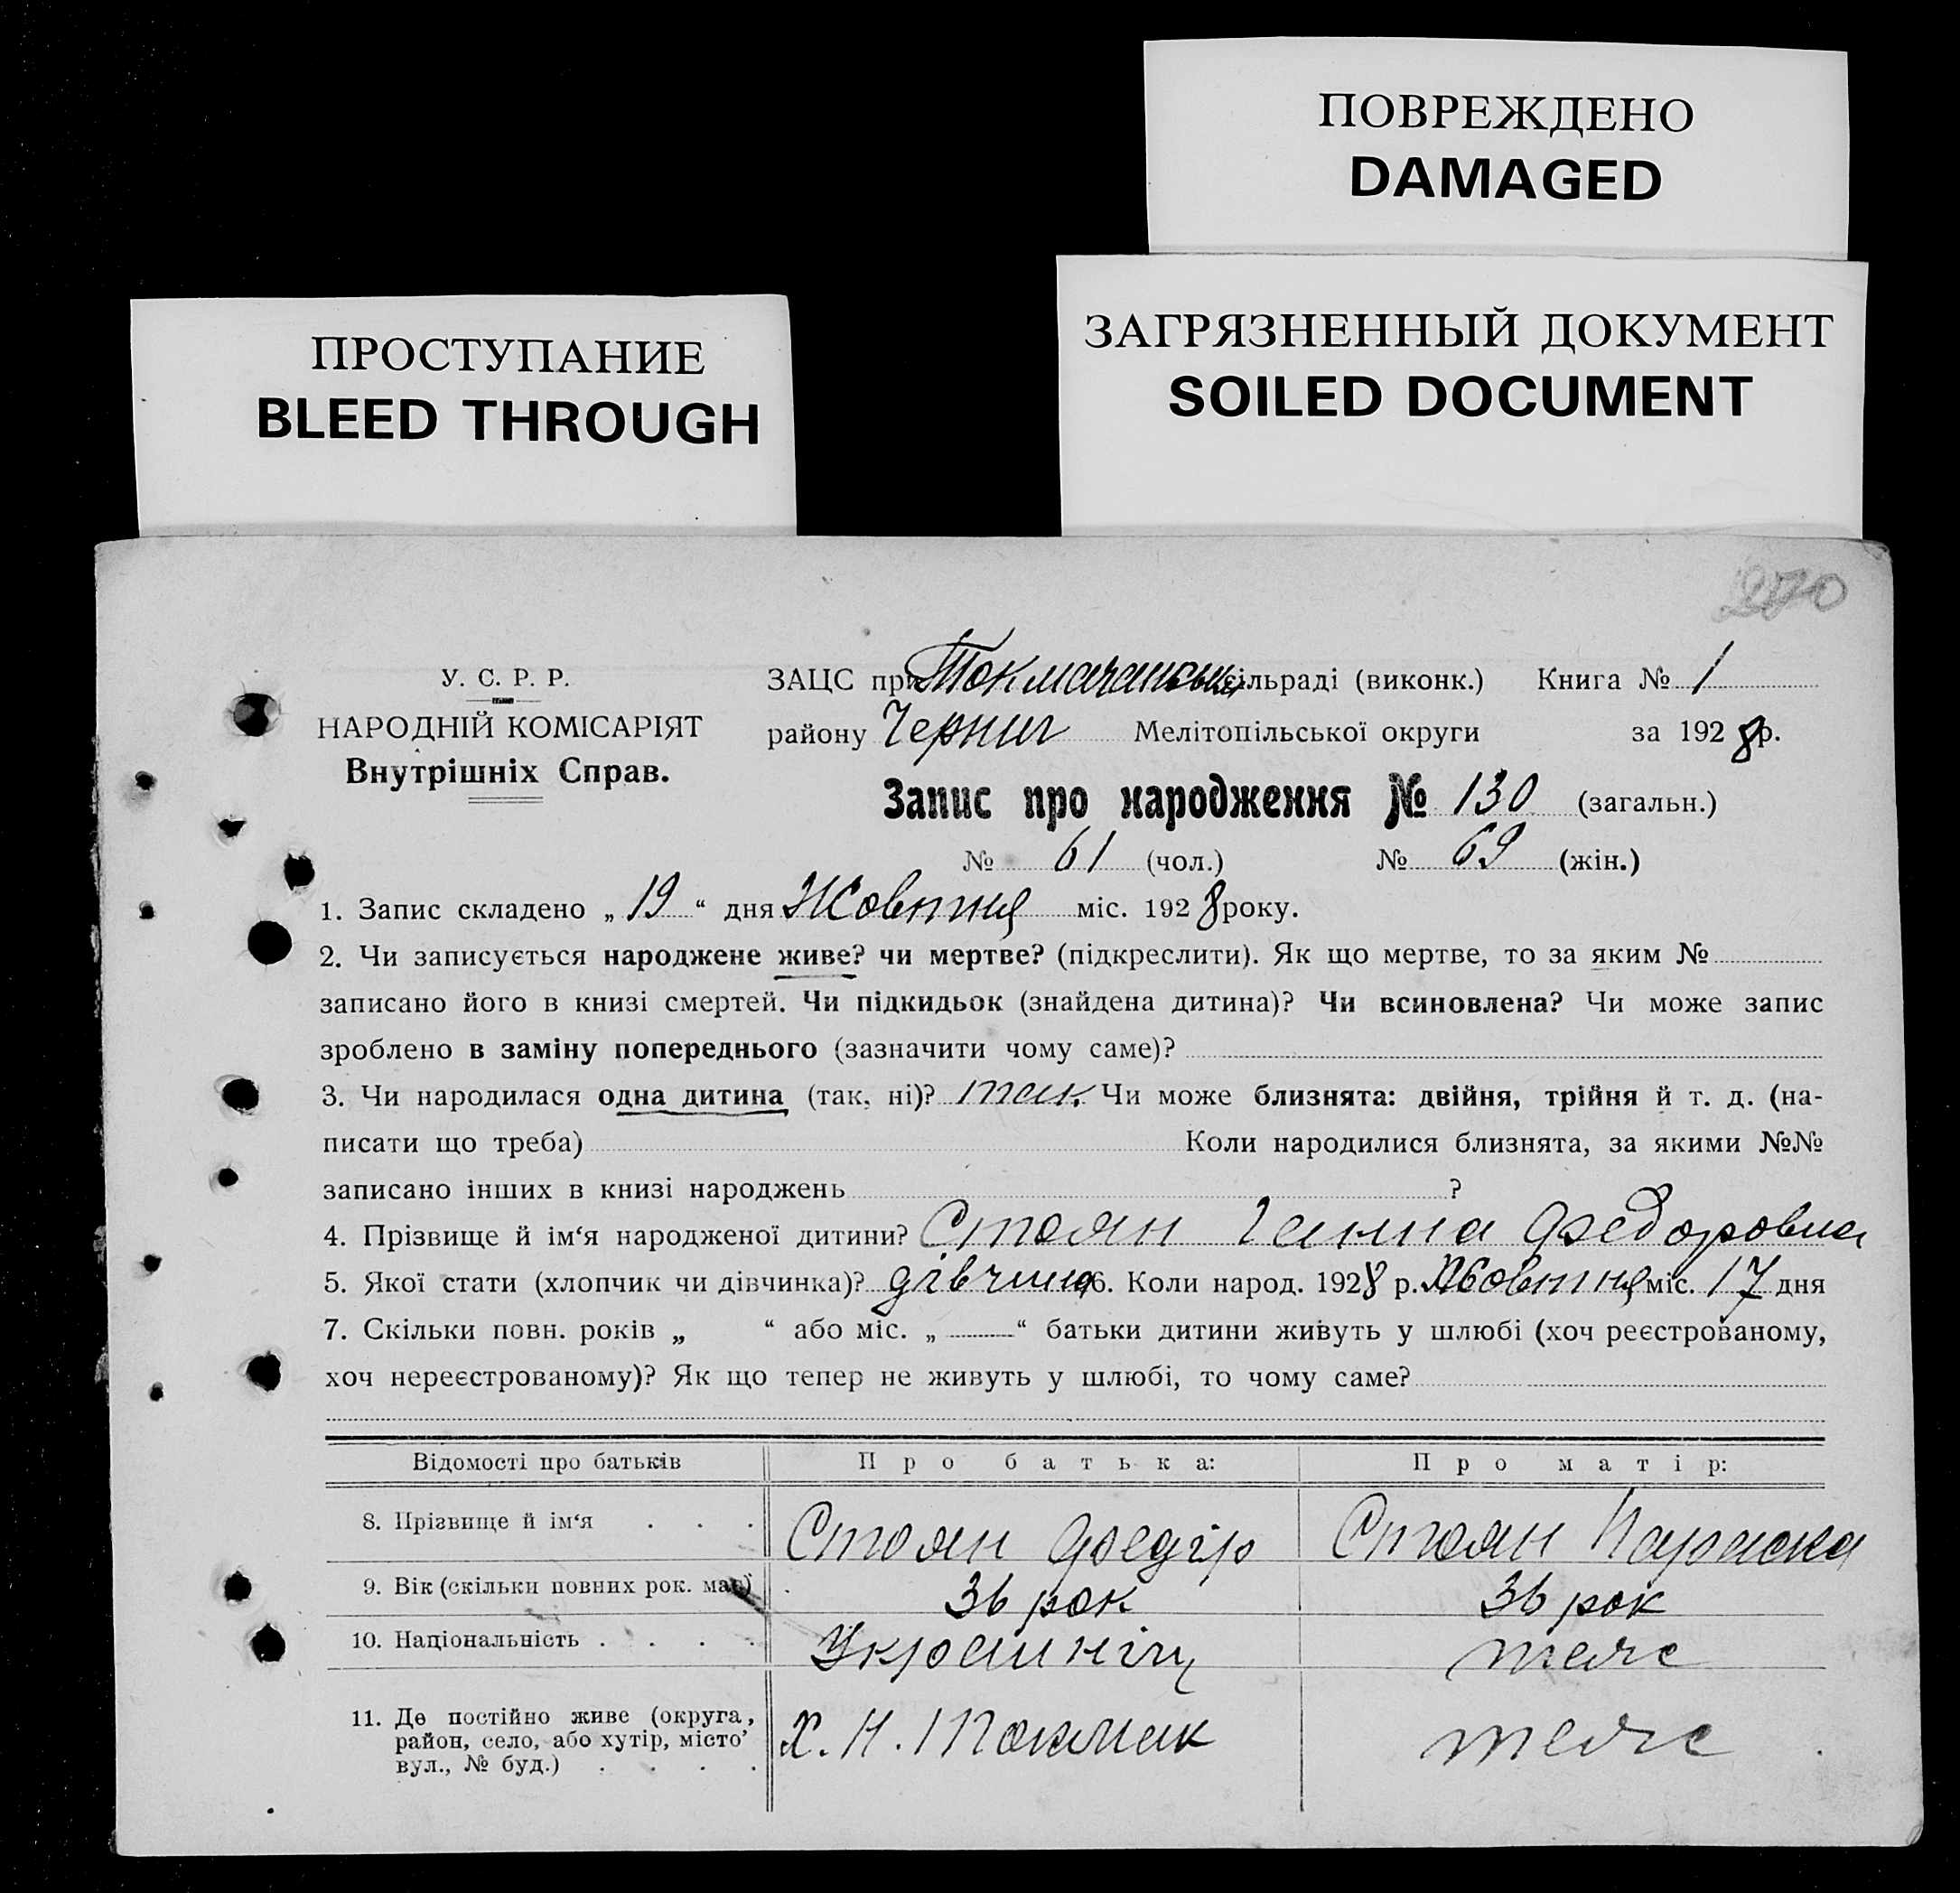 ПОВРЕЖДЕНО
DAMAGED
ЗАГРЯЗНЕННЫЙ ДОКУМЕНТ
SOILED DOCUMENT
ПРОСТУПАНИЕ
BLEED THROUGH
270
У. С. Р. Р.
НАРОДНІЙ КОМІСАРІЯТ
Внутрішніх Справ.
ЗАЦС при Токмачанській сільраді (виконк.) Книга № 1
району Черниг Мелітопільської округи за 1928 р.
Запис про народження № 130 (загальн.)
№ 61 (чол.) № 69 (жін.)
1. Запис складено „ 19 “ дня Жовтня міс. 1928 року.
2. Чи записується народжене живе? чи мертве? (підкреслити). Як що мертве, то за яким №
записано його в книзі смертей. Чи підкидьок (знайдена дитина)? Чи всиновлена? Чи може запис
зроблено в заміну попереднього (зазначити чому саме)?
3. Чи народилася одна дитина (так, ні)? так. Чи може близнята: двійня, трійня й т. д. (на-
писати що треба) Коли народилися близнята, за якими №№
записано інших в книзі народжень ?
4. Прізвище й ім‘я народженої дитини? Стоян Ганна Федоровна
5. Якої стати (хлопчик чи дівчинка)? дівчина 6. Коли народ. 1928 р. Жовтня міс. 17 дня
7. Скільки повн. років „ “ або міс. „ — “ батьки дитини живуть у шлюбі (хоч реєстрованому,
хоч нереєстрованому)? Як що тепер не живуть у шлюбі, то чому саме?
Відомості про батьків Про батька: Про матір:
8. Прізвище й ім‘я . . . Стоян Федір Стоян Параска
9. Вік (скільки повних рок. має) 36 рок 36 рок
10. Національність . . . . Українїц теже
11. Де постійно живе (округа,
район, село, або хутір, місто’
вул., № буд.) . . . . Х. Н. Токмак теже